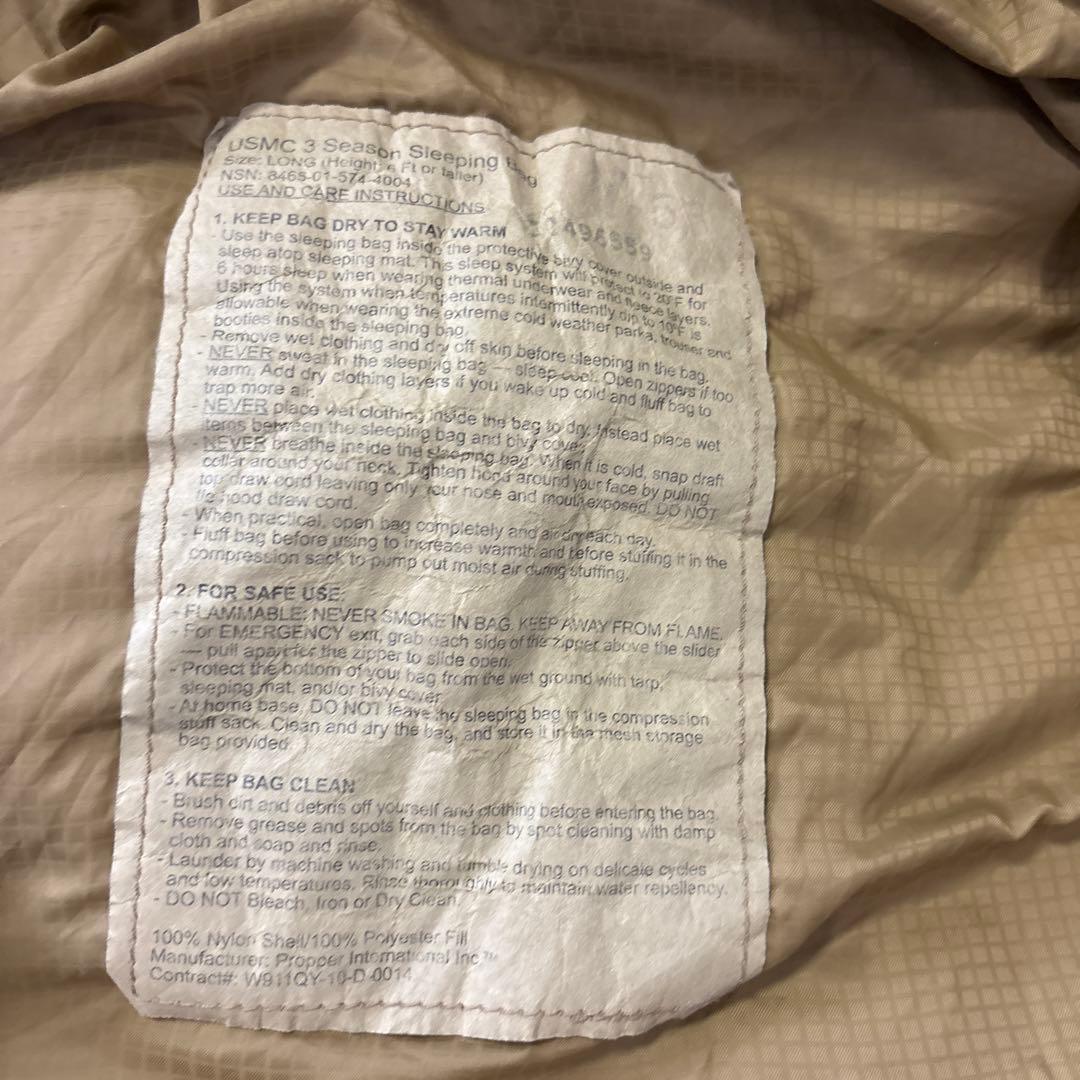 USMC 3 Season Sleeping Bag
Size: LONG (Height: 6 Ft or taller)
NSN: 8465-01-574-4004
USE AND CARE INSTRUCTIONS
1. KEEP BAG DRY TO STAY WARM
- Use the sleeping bag inside the protective bivy cover outside and
sleep atop sleeping mat. This sleep system will protect to 20°F for
6 hours sleep when wearing thermal underwear and fleece layers.
Using the system when temperatures intermittently dip to 10°F is
allowable when wearing the extreme cold weather parka, trouser and
booties inside the sleeping bag.
- Remove wet clothing and dry off skin before sleeping in the bag.
- NEVER sweat in the sleeping bag — sleep cool. Open zippers if too
warm. Add dry clothing layers if you wake up cold and fluff bag to
trap more air.
- NEVER place wet clothing inside the bag to dry. Instead place wet
items between the sleeping bag and bivy cover.
- NEVER breathe inside the sleeping bag. When it is cold, snap draft
collar around your neck. Tighten hood around your face by pulling
top draw cord leaving only your nose and mouth exposed. DO NOT
tie hood draw cord.
- When practical, open bag completely and air dry each day.
- Fluff bag before using to increase warmth and before stuffing it in the
compression sack to pump out moist air during stuffing.
2. FOR SAFE USE:
- FLAMMABLE: NEVER SMOKE IN BAG. KEEP AWAY FROM FLAME.
- For EMERGENCY exit, grab each side of the zipper above the slider
— pull apart for the zipper to slide open.
- Protect the bottom of your bag from the wet ground with tarp,
sleeping mat, and/or bivy cover.
- At home base, DO NOT leave the sleeping bag in the compression
stuff sack. Clean and dry the bag, and store it in the mesh storage
bag provided.
3. KEEP BAG CLEAN
- Brush dirt and debris off yourself and clothing before entering the bag.
- Remove grease and spots from the bag by spot cleaning with damp
cloth and soap and rinse.
- Launder by machine washing and tumble drying on delicate cycles
and low temperatures. Rinse thoroughly to maintain water repellency.
- DO NOT Bleach, Iron or Dry Clean.
100% Nylon Shell/100% Polyester Fill
Manufacturer: Propper International Inc™
Contract#: W911QY-10-D-0014